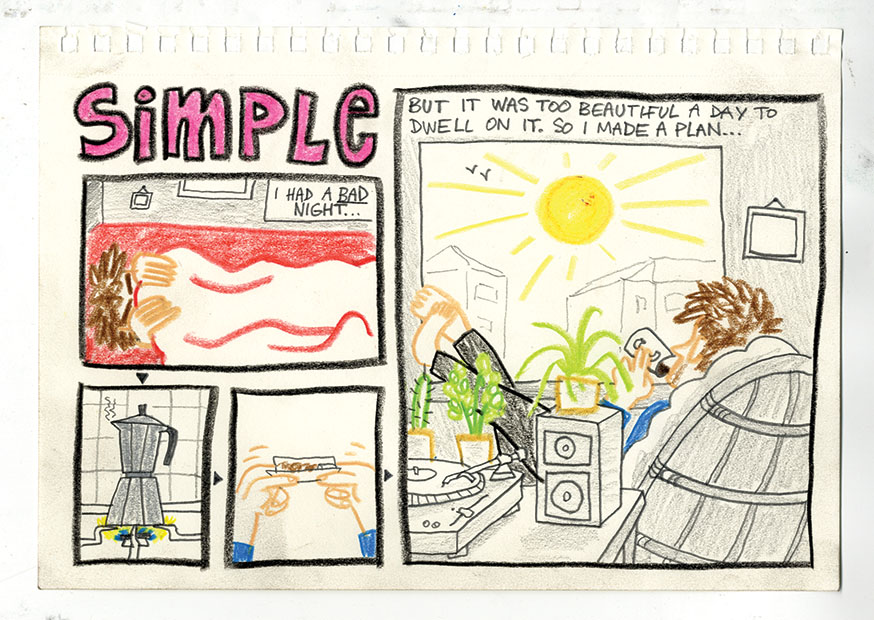 SiMPLe
I HAD A BAD
NIGHT...
BUT IT WAS TOO BEAUTIFUL A DAY TO
DWELL ON IT. SO I MADE A PLAN...